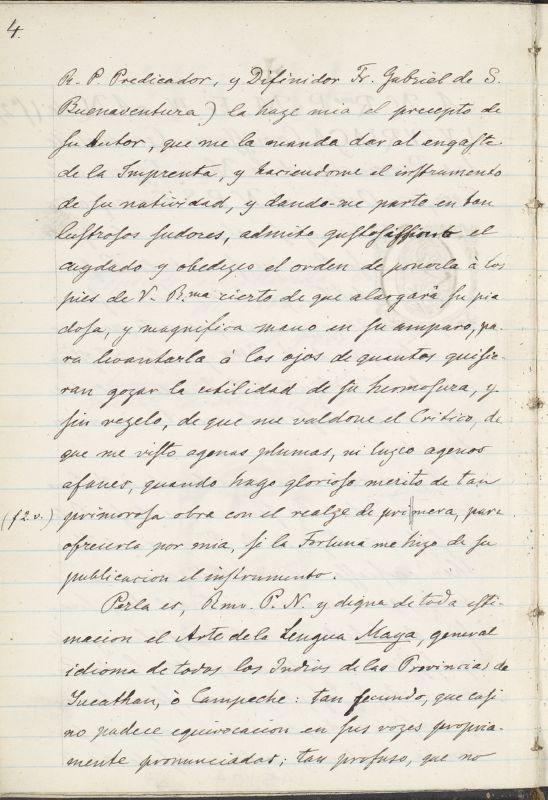 4.
R. P. Predicador, y Difinidor Fr. Gabriel de S.
Buenaventura) la haze mia el precepto de
su Autor, que me la manda dar al engaste
de la Imprenta, y haciendome el instrumento
de su natividad, y dando-me parte en tan
lustrosos sudores, admito gustosissimo el
cuydado y obedezco el orden de ponerla à los
pies de V. Rma cierto de que alargarà su pia
dosa, y magnifica mano en su amparo, pa-
ra levantarla à los ojos de quantos quisie-
ran gozar la utilidad de su hermosura, y
sin rezelo, de que me valdone el Critico, de
que me visto agenas plumas, ni luzco agenos
afanes, quando hago glorioso merito de tan
(f 2. v.) primorosa obra con el realze de pri||mera, para
ofrecerla por mia, si la Fortuna me hizo de su
publicacion el instrumento.
Perla es, Rmo. P. N. y digna de toda esti-
macion el Arte de la Lengua Maya, general
idioma de todos los Indios de las Provincias de
Yucathan, ò Campeche: tan fecundo, que casi
no padece equivocacion en sus vozes propria-
mente pronunciadas; tan profuso, que no